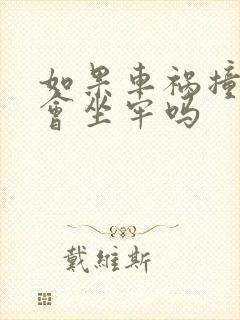 如果車祸撞
會坐牢吗
戴維斯